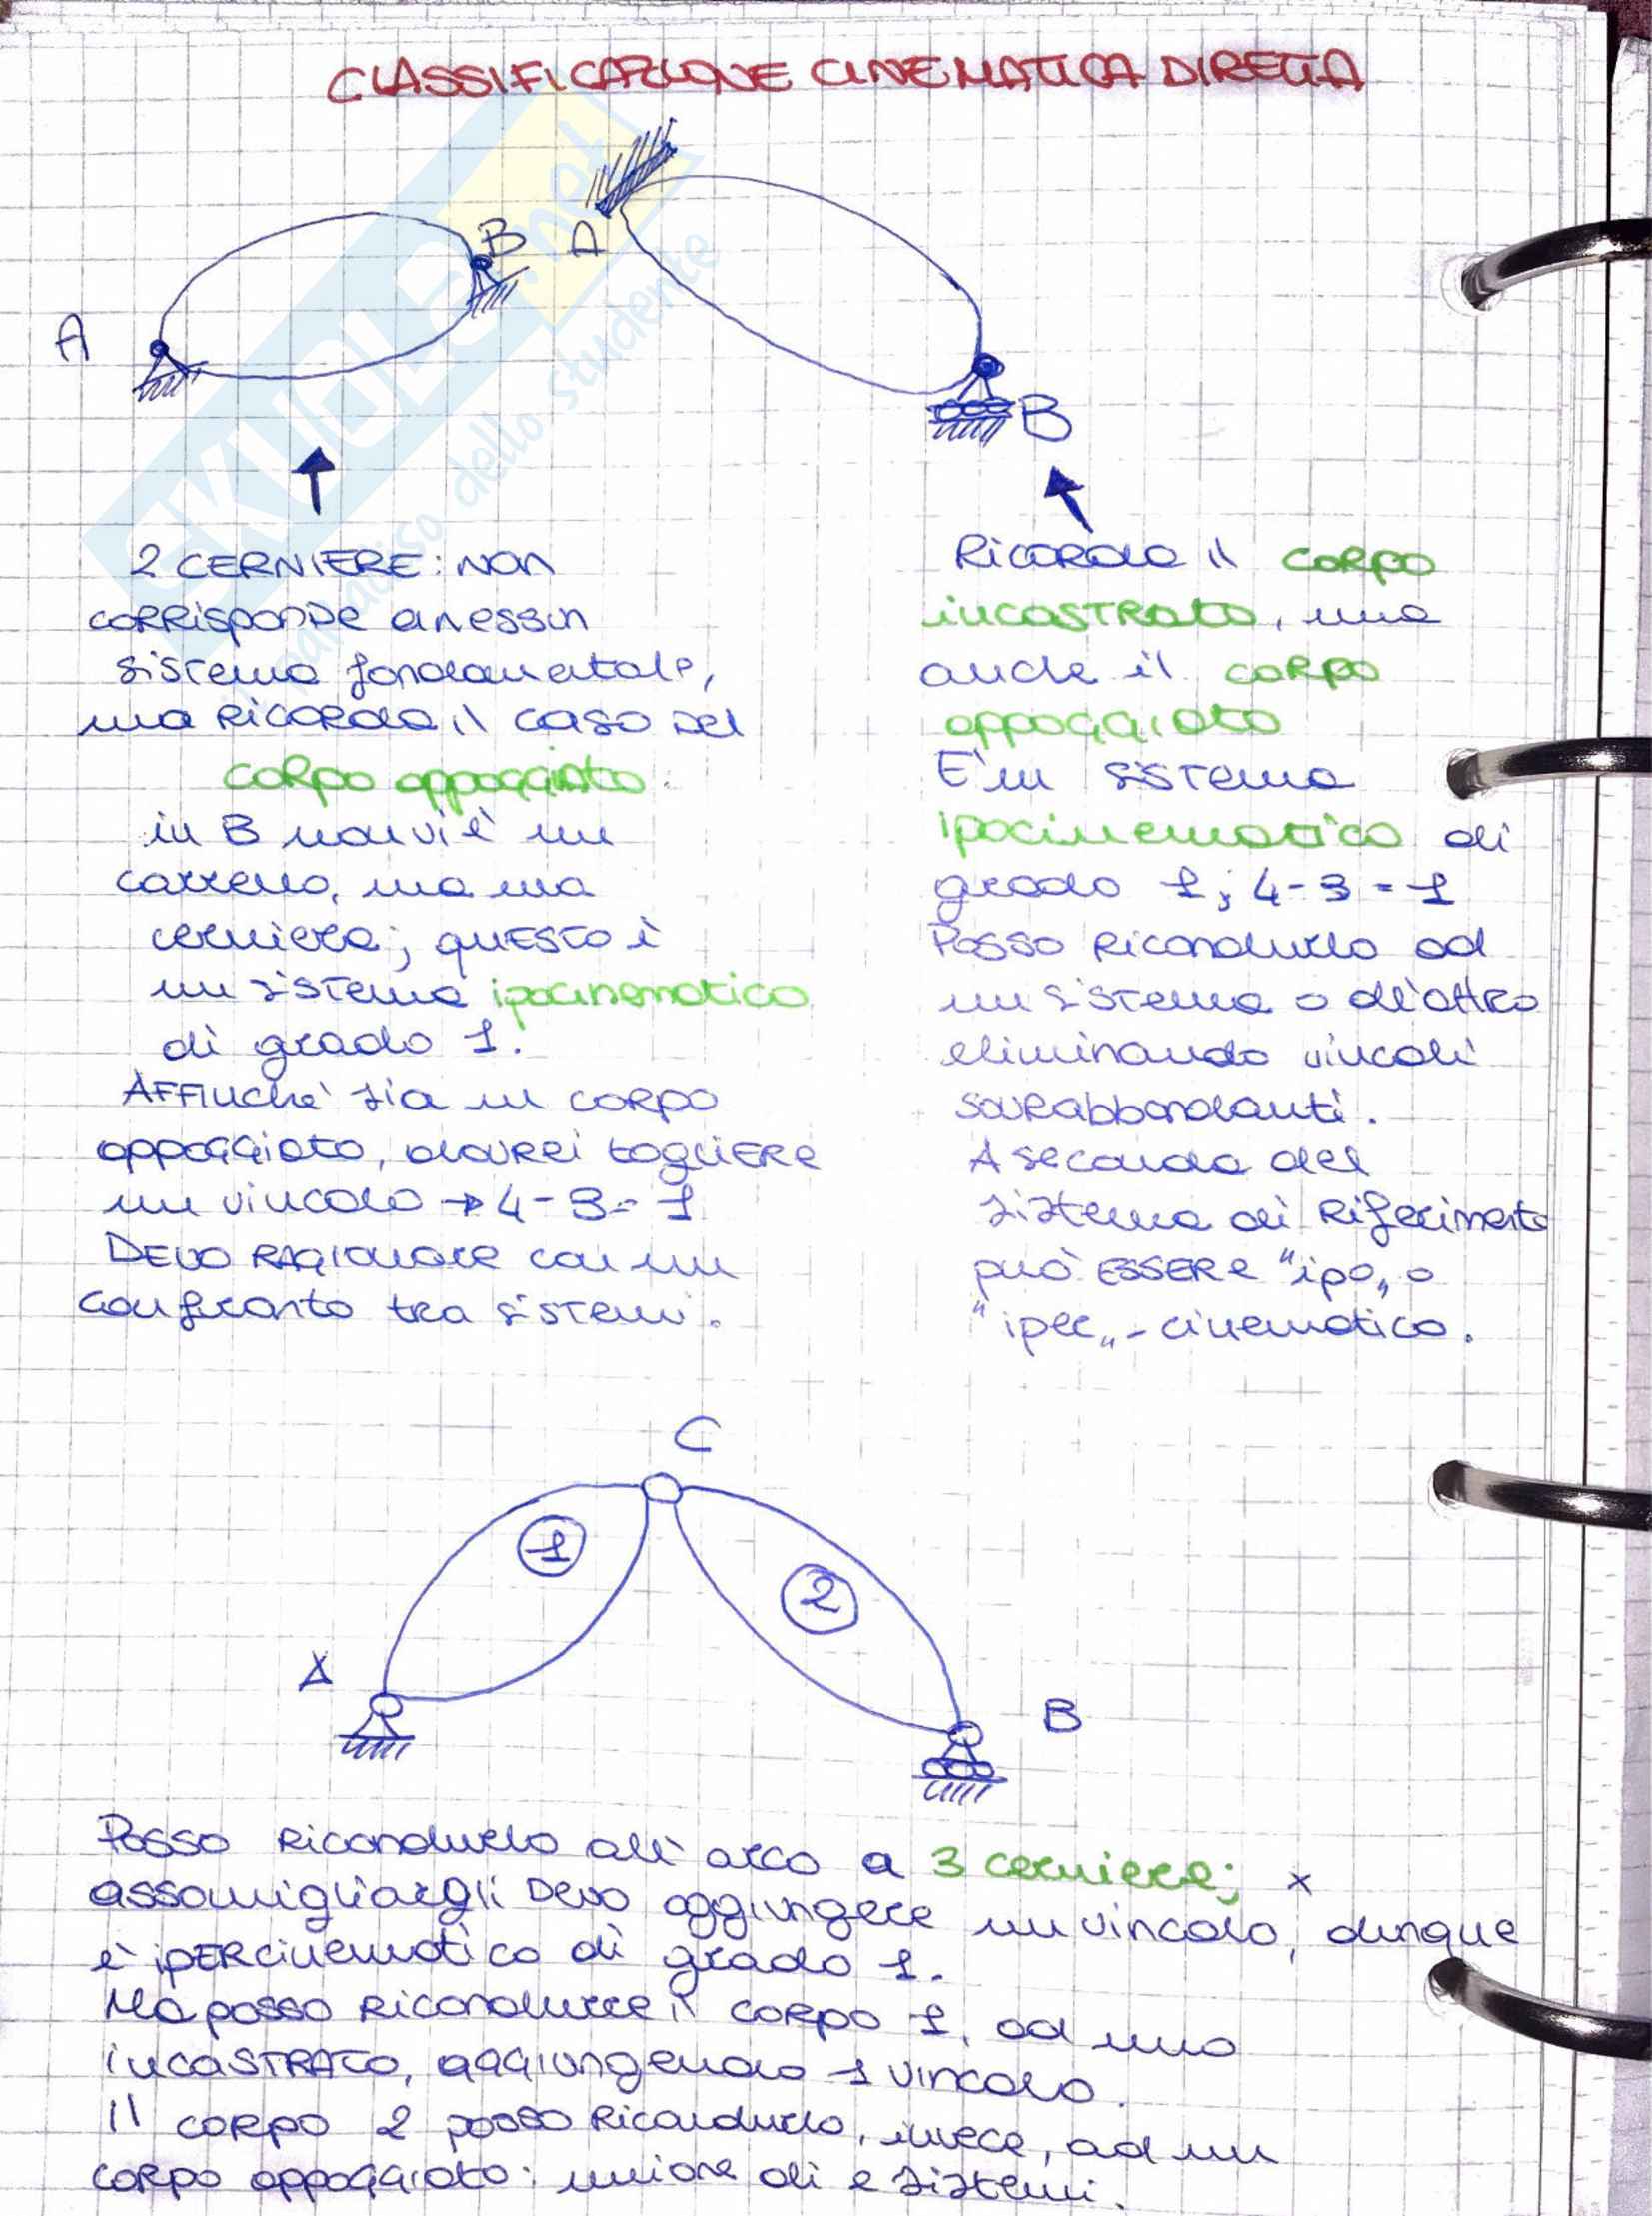 CLASSIFICAZIONE CINEMATICA DIRETTA
A
B
A
B
2 CERNIERE: NON
CORRISPONDE a nessun
sistema fondamentale,
ma RICORDA il caso del
corpo appoggiato:
in B non vi è un
carrello, ma una
cerniera; QUESTO è
un sistema ipocinematico
di grado 1.
AFFINChé sia un corpo
appoggiato, dovrei togliere
un vincolo → 4-3=1
Devo RAGIONARE con un
confronto tra sistemi.
RICORDA il corpo
incastrato, ma
anche il corpo
appoggiato
E' un sistema
ipocinematico di
grado 1; 4-3=1
Posso ricondurlo ad
un sistema o all'altro
eliminando vincoli
sovrabbondanti.
A seconda del
sistema di riferimento
può ESSERE "ipo" o
"iper"-cinematico.
C
1
2
A
B
Posso ricondurlo all'arco a 3 cerniere; x
assomigliargli Devo aggiungere un vincolo, dunque
è iPERcinematico di grado 1.
Ma posso ricondurre il corpo 1, ad uno
incastrato, aggiungendo 1 vincolo.
Il corpo 2 posso ricondurlo, invece, ad un
corpo appoggiato: unione di sistemi.
SKUOLA.net
paradiso dello studente